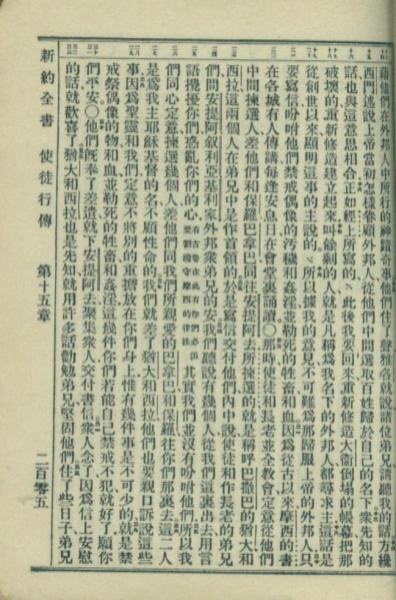 藉他們在外邦人中所行的神蹟奇事他們住了聲雅各就說諸位弟兄請聽我的話方纔
西門述說上帝當初怎樣眷顧外邦人從他們中間選取百姓歸於自己的名下衆先知的
話也與這意思相合正如經上所寫的此後我要回來重新修造大衞倒塌的帳幕把那
破壞的重新修造建立起來叫餘剩的人就是凡稱爲我名下的外邦人都尋求主這話是
從創世以來顯明這事的主說的所以據我的意見不可難爲那歸服上帝的外邦人只
要寫信吩咐他們禁戒偶像的汚穢和姦淫並勒死的牲畜和血因爲從古以來摩西的書
在各城有人傳講每逢安息日在會堂裏誦讀○那時使徒和長老並全教會定意從他們
中間揀選人差他們和保羅巴拿巴同往安提阿去所揀選的就是稱呼巴撒巴的猶大和
西拉這兩個人在弟兄中是作首領的於是寫信交付他們內中說使徒和作長老的弟兄
們問安提阿叙利亞基利家外邦衆弟兄的安我們聽說有幾個人從我們這裏出去用言
語攪擾你們惑亂你們的心其實我們並沒有吩咐他們所以我
們同心定意揀選幾個人差他們同我們所親愛的巴拿巴和保羅往你們那裏去這二人
是爲我主耶穌基督的名不顧性命的我們就差了猶大和西拉他們也要親口訴說這些
事因爲聖靈和我們定意不將別的重擔放在你們身上惟有幾件事是不可少的就是禁
戒祭偶像的物和血並勒死的牲畜和姦淫這幾件你們若能自己禁戒不犯就好了願你
們平安○他們旣奉了差遣就下安提阿去聚集衆人交付書信衆人念了因爲信上安慰
的話就歡喜了猶大和西拉也是先知就用許多話勸勉弟兄堅固他們住了些日子弟兄
新約全書 使徒行傳 第十五章 二百零五